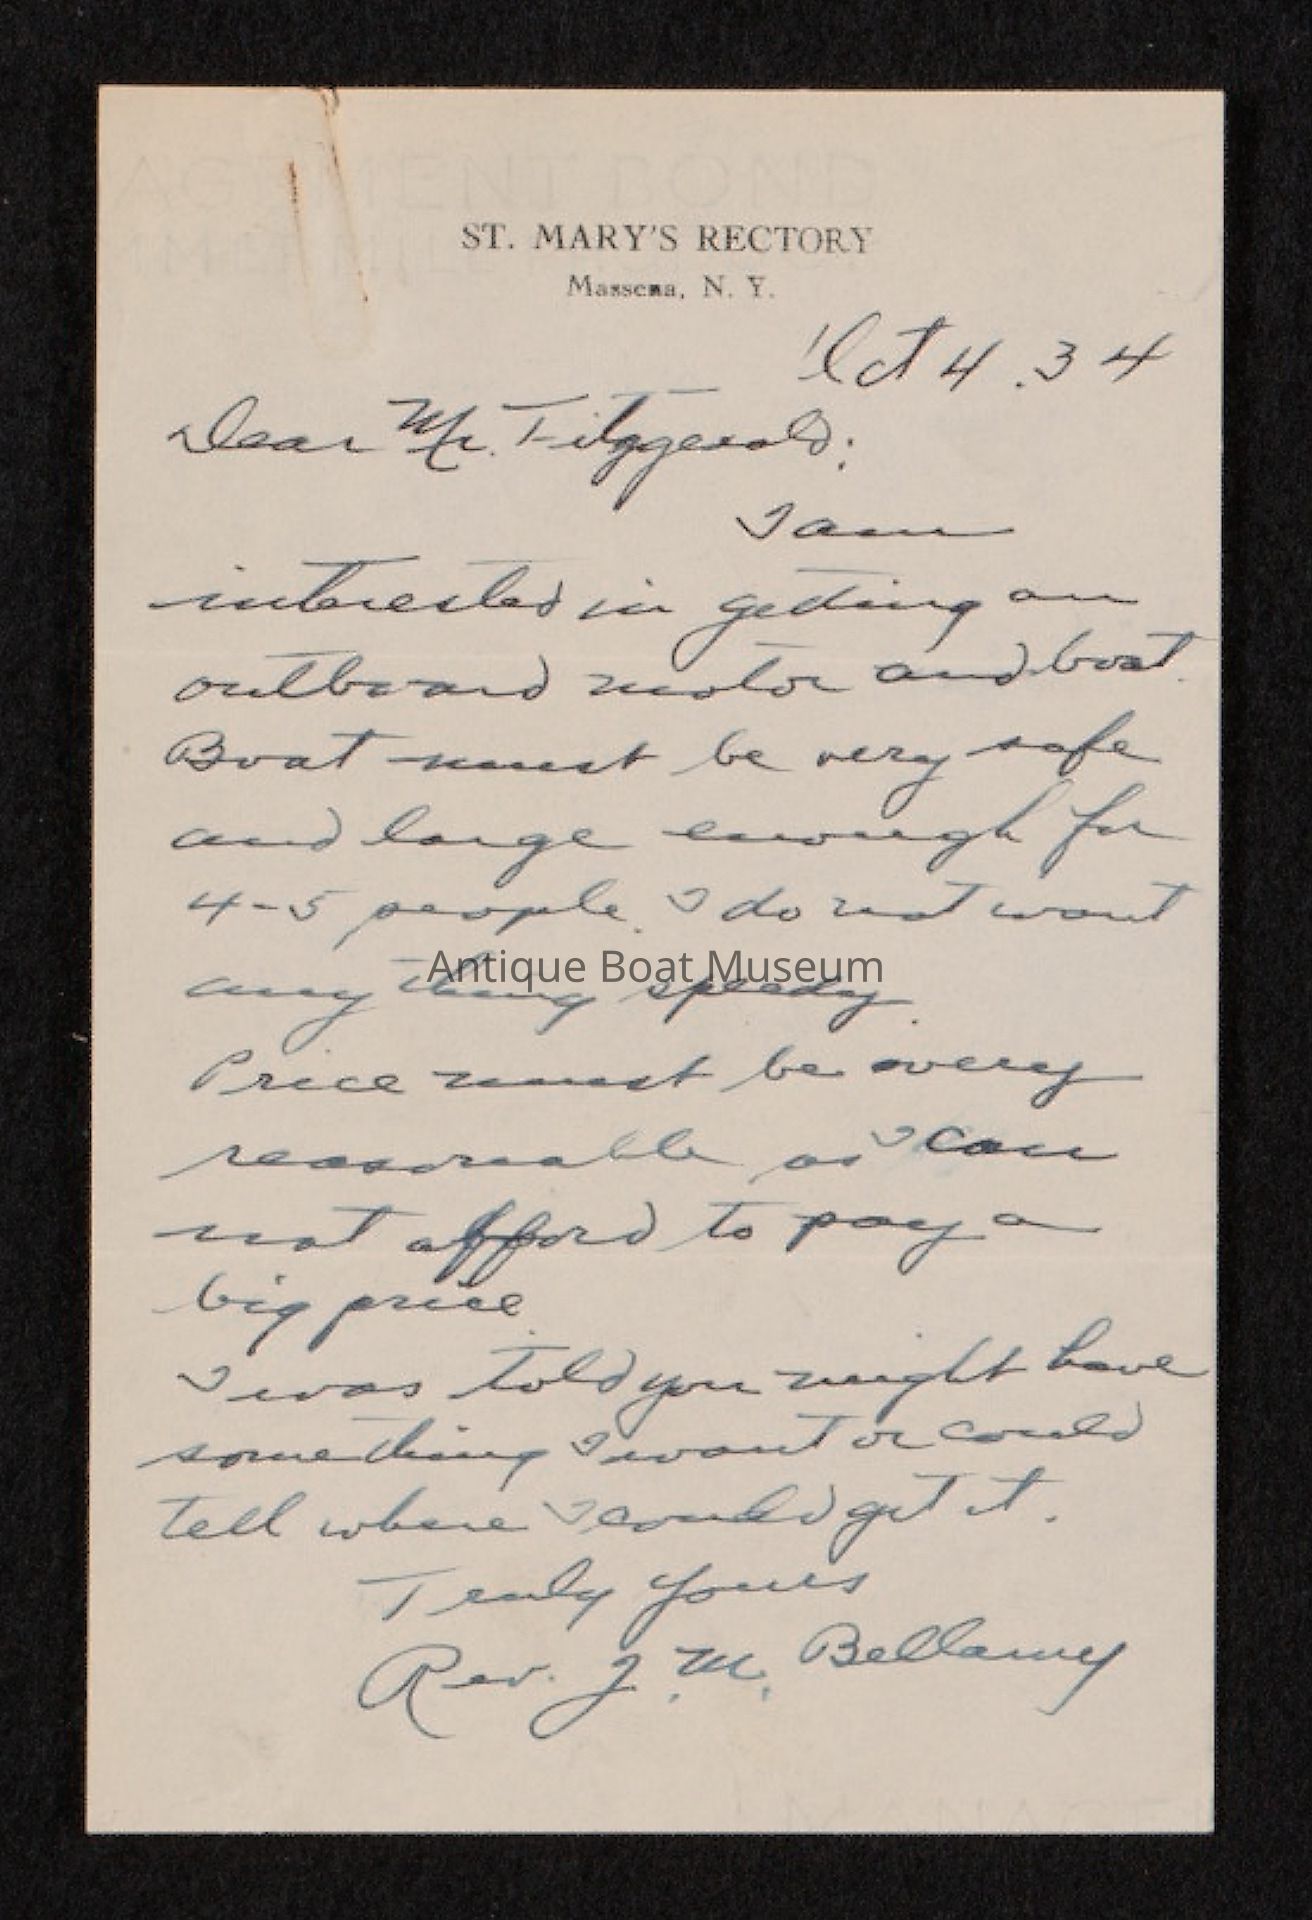 ST. MARY'S RECTORY
Massena, N. Y.
Oct 4. 34
Dear Mr. Fitzgerald:
I am
interested in getting an
outboard motor and boat.
Boat must be very safe
and large enough for
4-5 people. I do not want
Antique Boat Museum
anything speedy.
Price must be very
reasonable, as I can
not afford to pay a
big price.
I was told you might have
something I want or could
tell where I could get it.
Truly yours
Rev. J. M. Bellamy